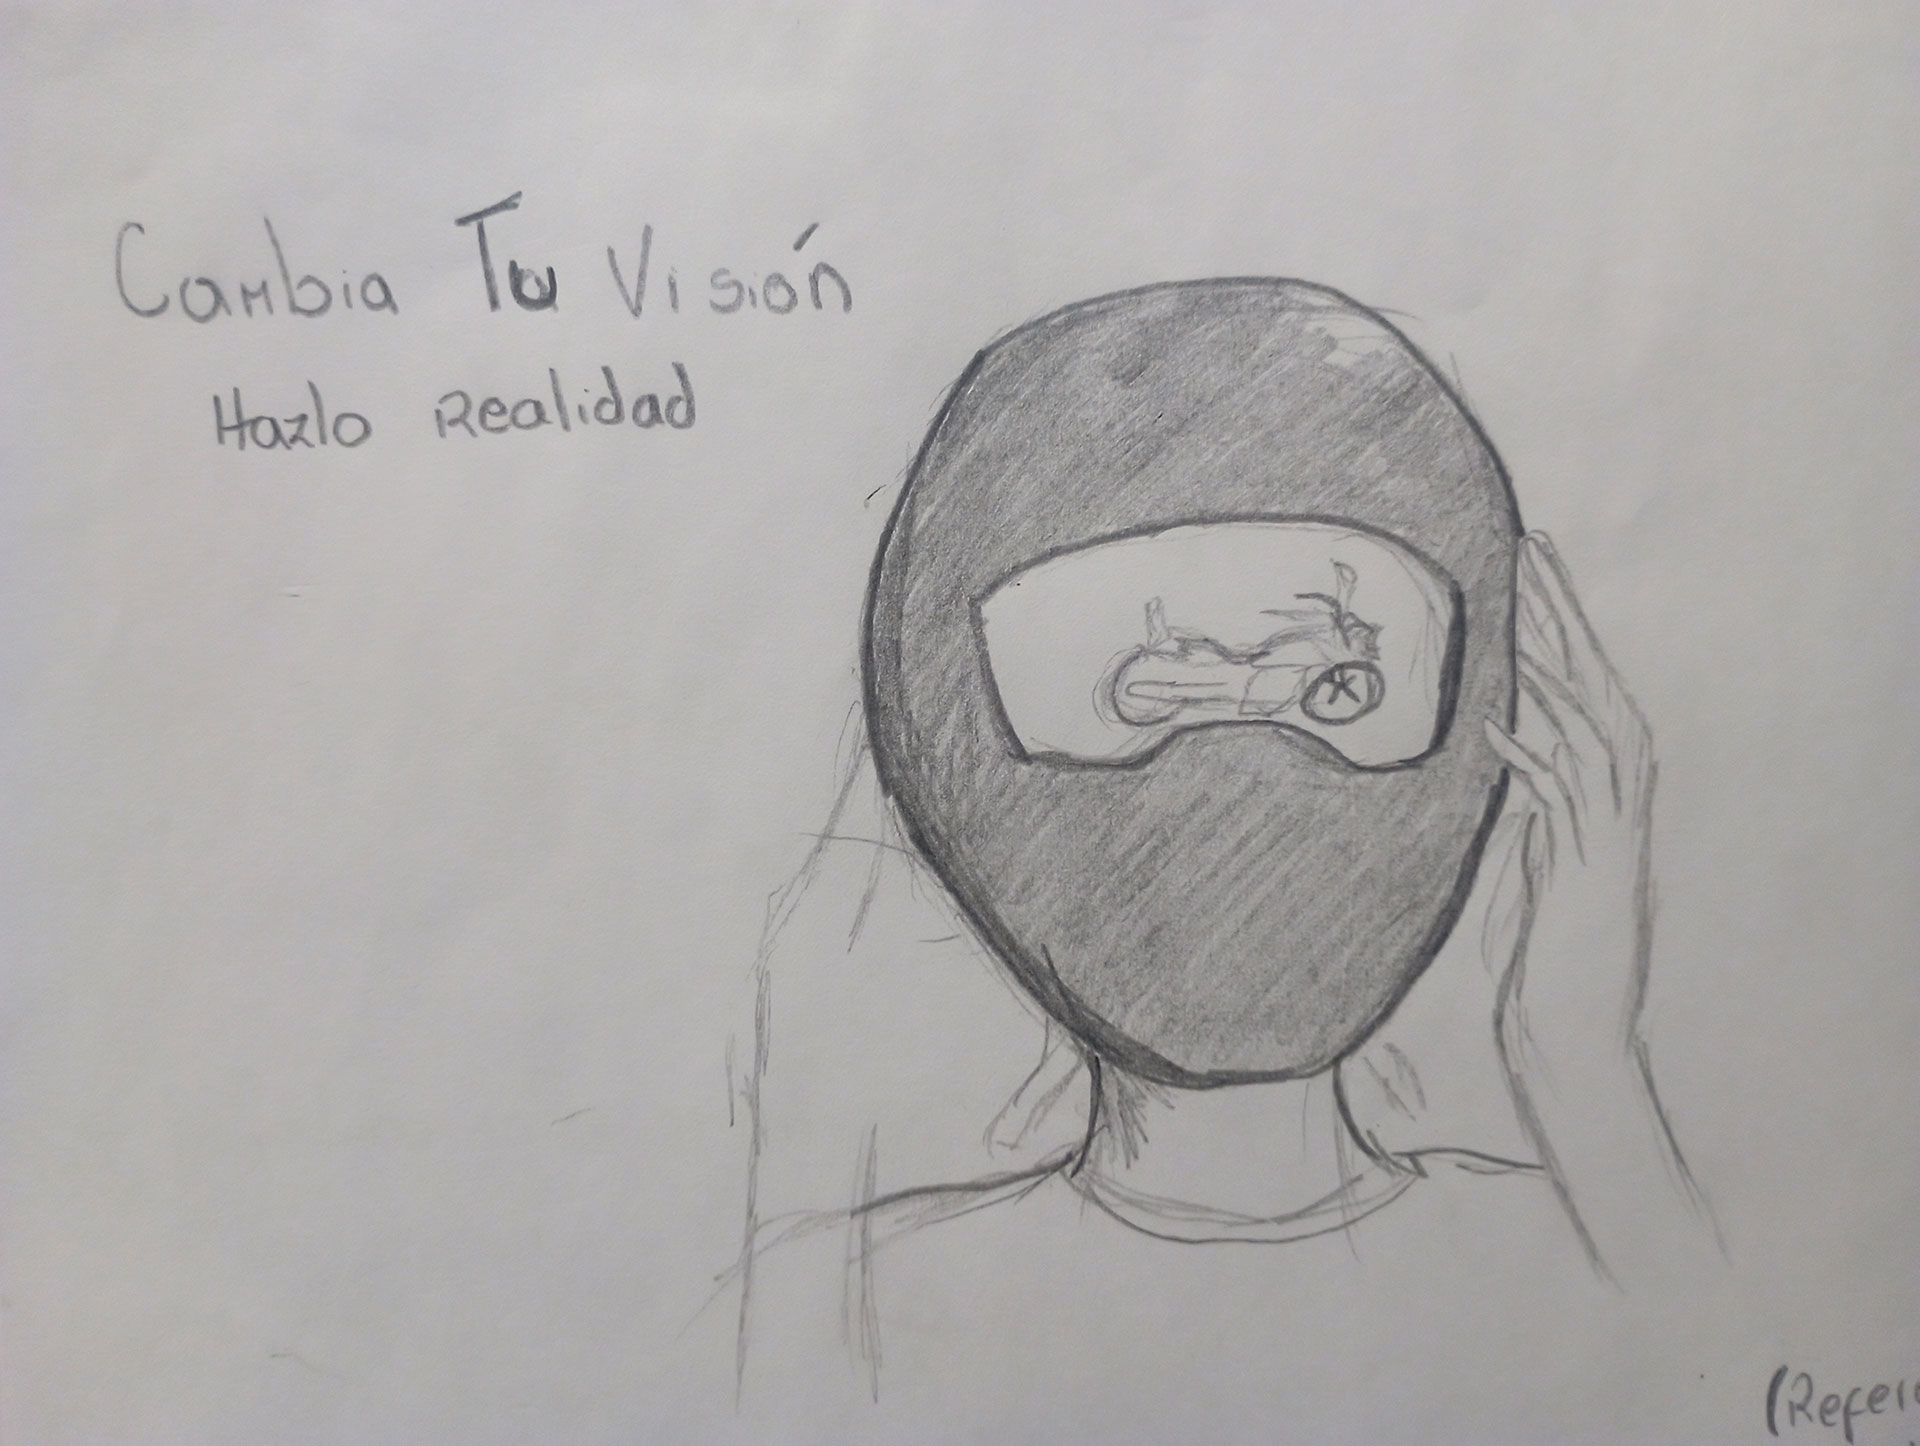 Cambia Tu Visión
Hazlo Realidad